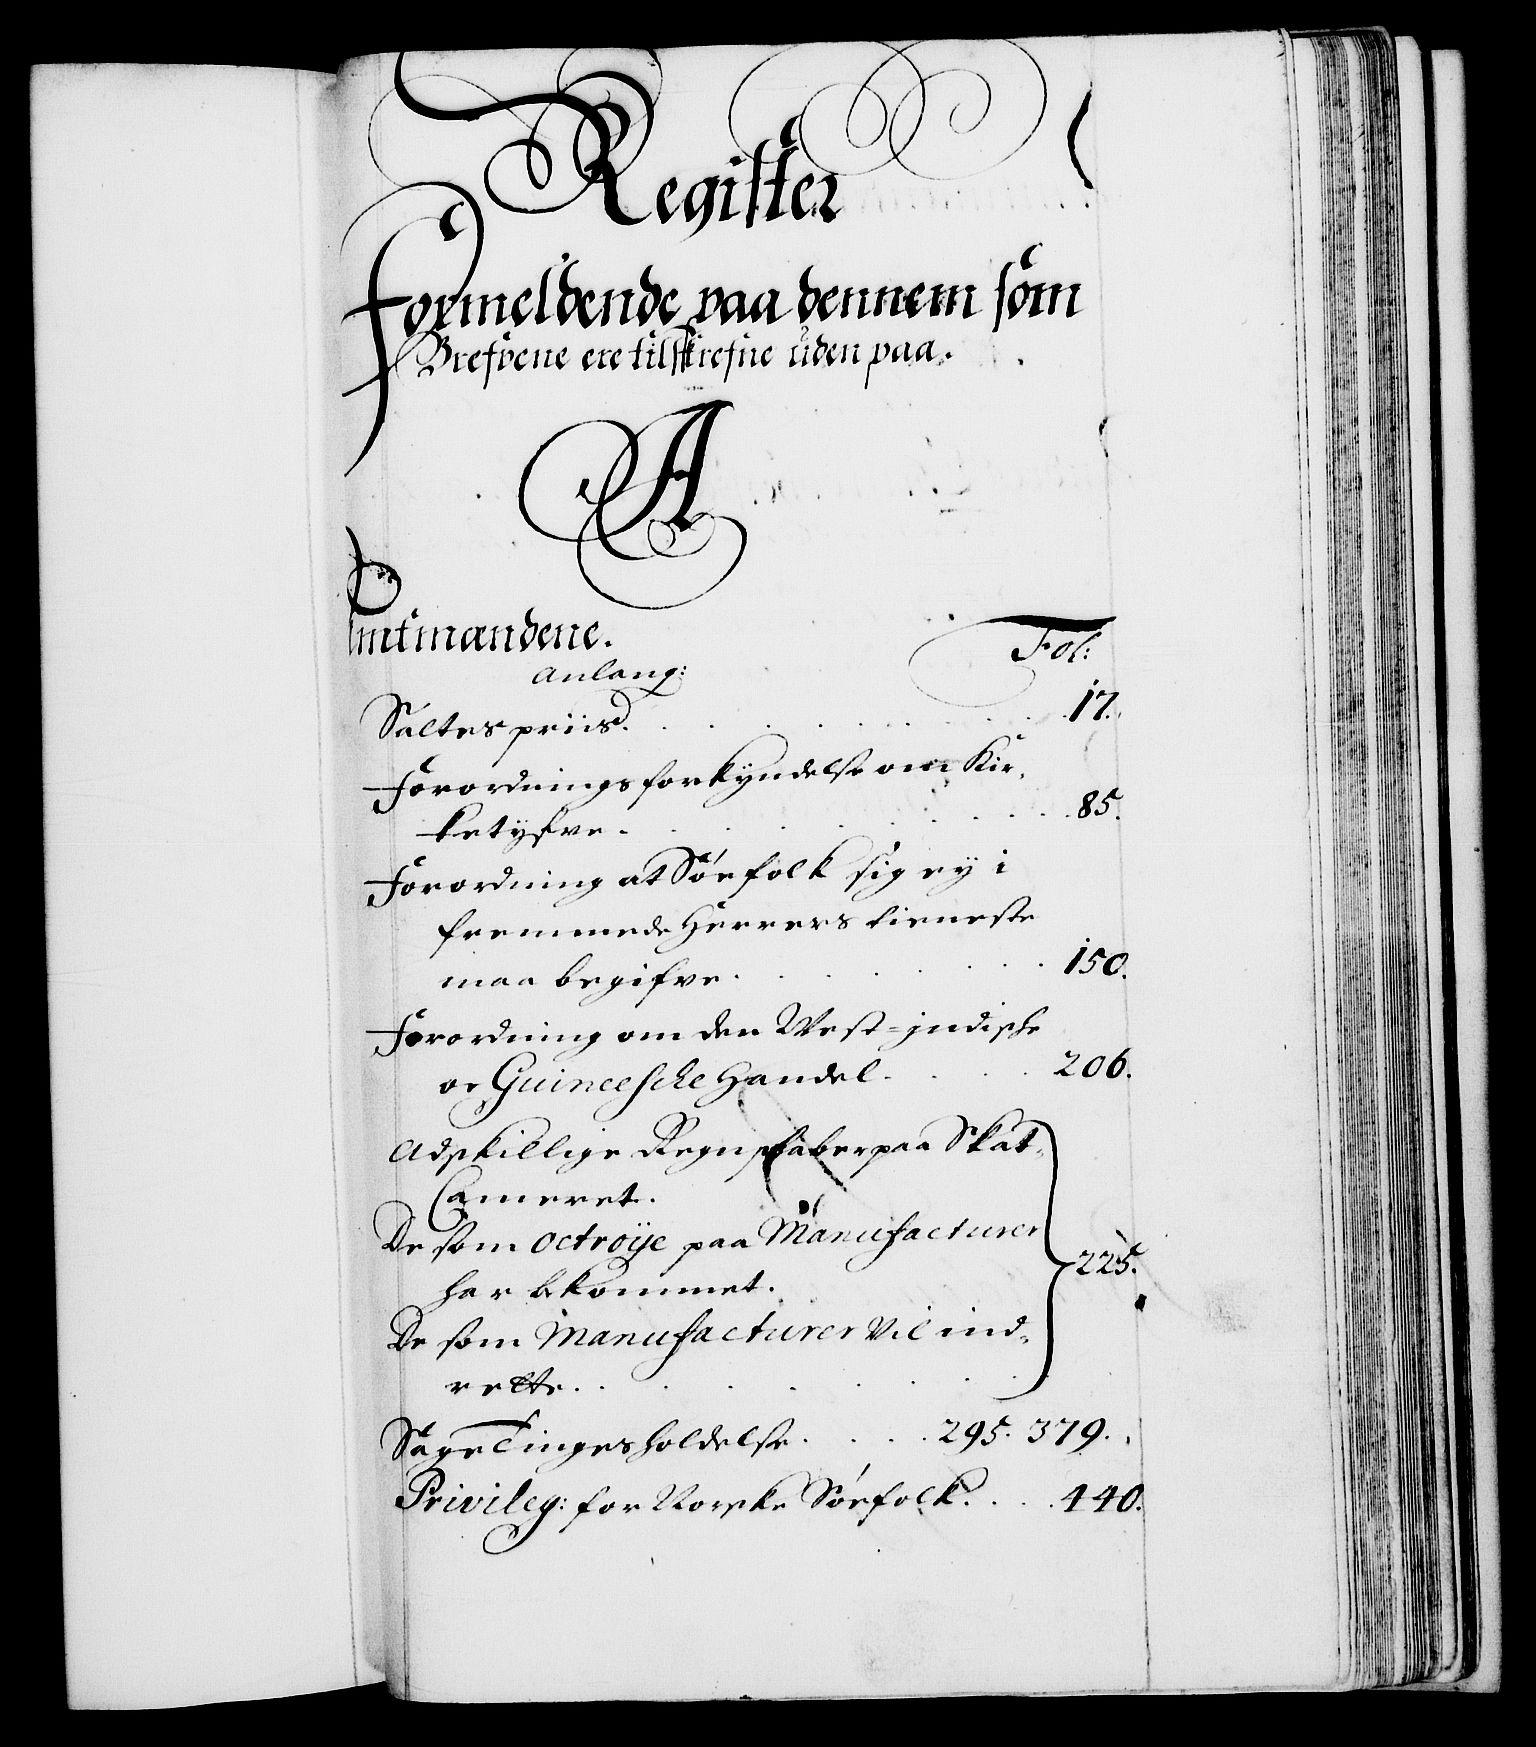 Register
Formeldende paa dennem som
Brefvene ere tilskrefne uden paa.
A
Amtmændene.
Fol:
Anlang:
Saltes priis. 17.
Forordnings forkyndelse om Kir-
ketyfve. 85.
Forordning at Söefolk sig ey i
fremmede Herrers tieneste
maa begifve. 150.
Forordning om den West-jndische
oc Guineesche Handel. 206.
Adskillige Regnskaber paa Skat-
Cameret.
De som octroÿe paa Manufacturer
har bekommet. 225.
De som Manufacturer vil ind-
rette.
Sage Tinges holdelse. 295. 379.
Privileg: for Norske Söefolk. 440.